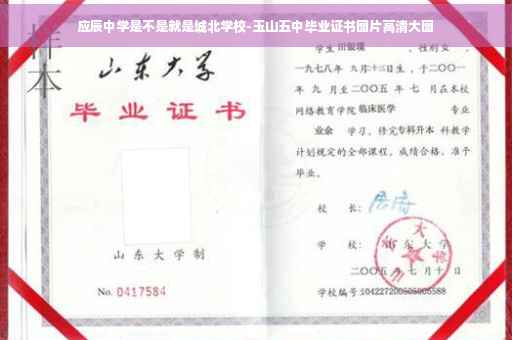 应辰中学是不是就是城北学校-玉山五中毕业证书图片高清大图
样本
山东大学
毕业证书
山东大学制
No. 0417584
学生
，性别女，
一九七八年 九月十三日生，于二〇〇一
年 九 月至二〇〇五 年 七 月在本校
网络教育学院 临床医学 专业
业余 学习，修完专科升本 科教学
计划规定的全部课程，成绩合格，准予
毕业。
校 长：
学 校：山东大学
二〇〇五年 七 月十 日
学校编号:104227200505005588